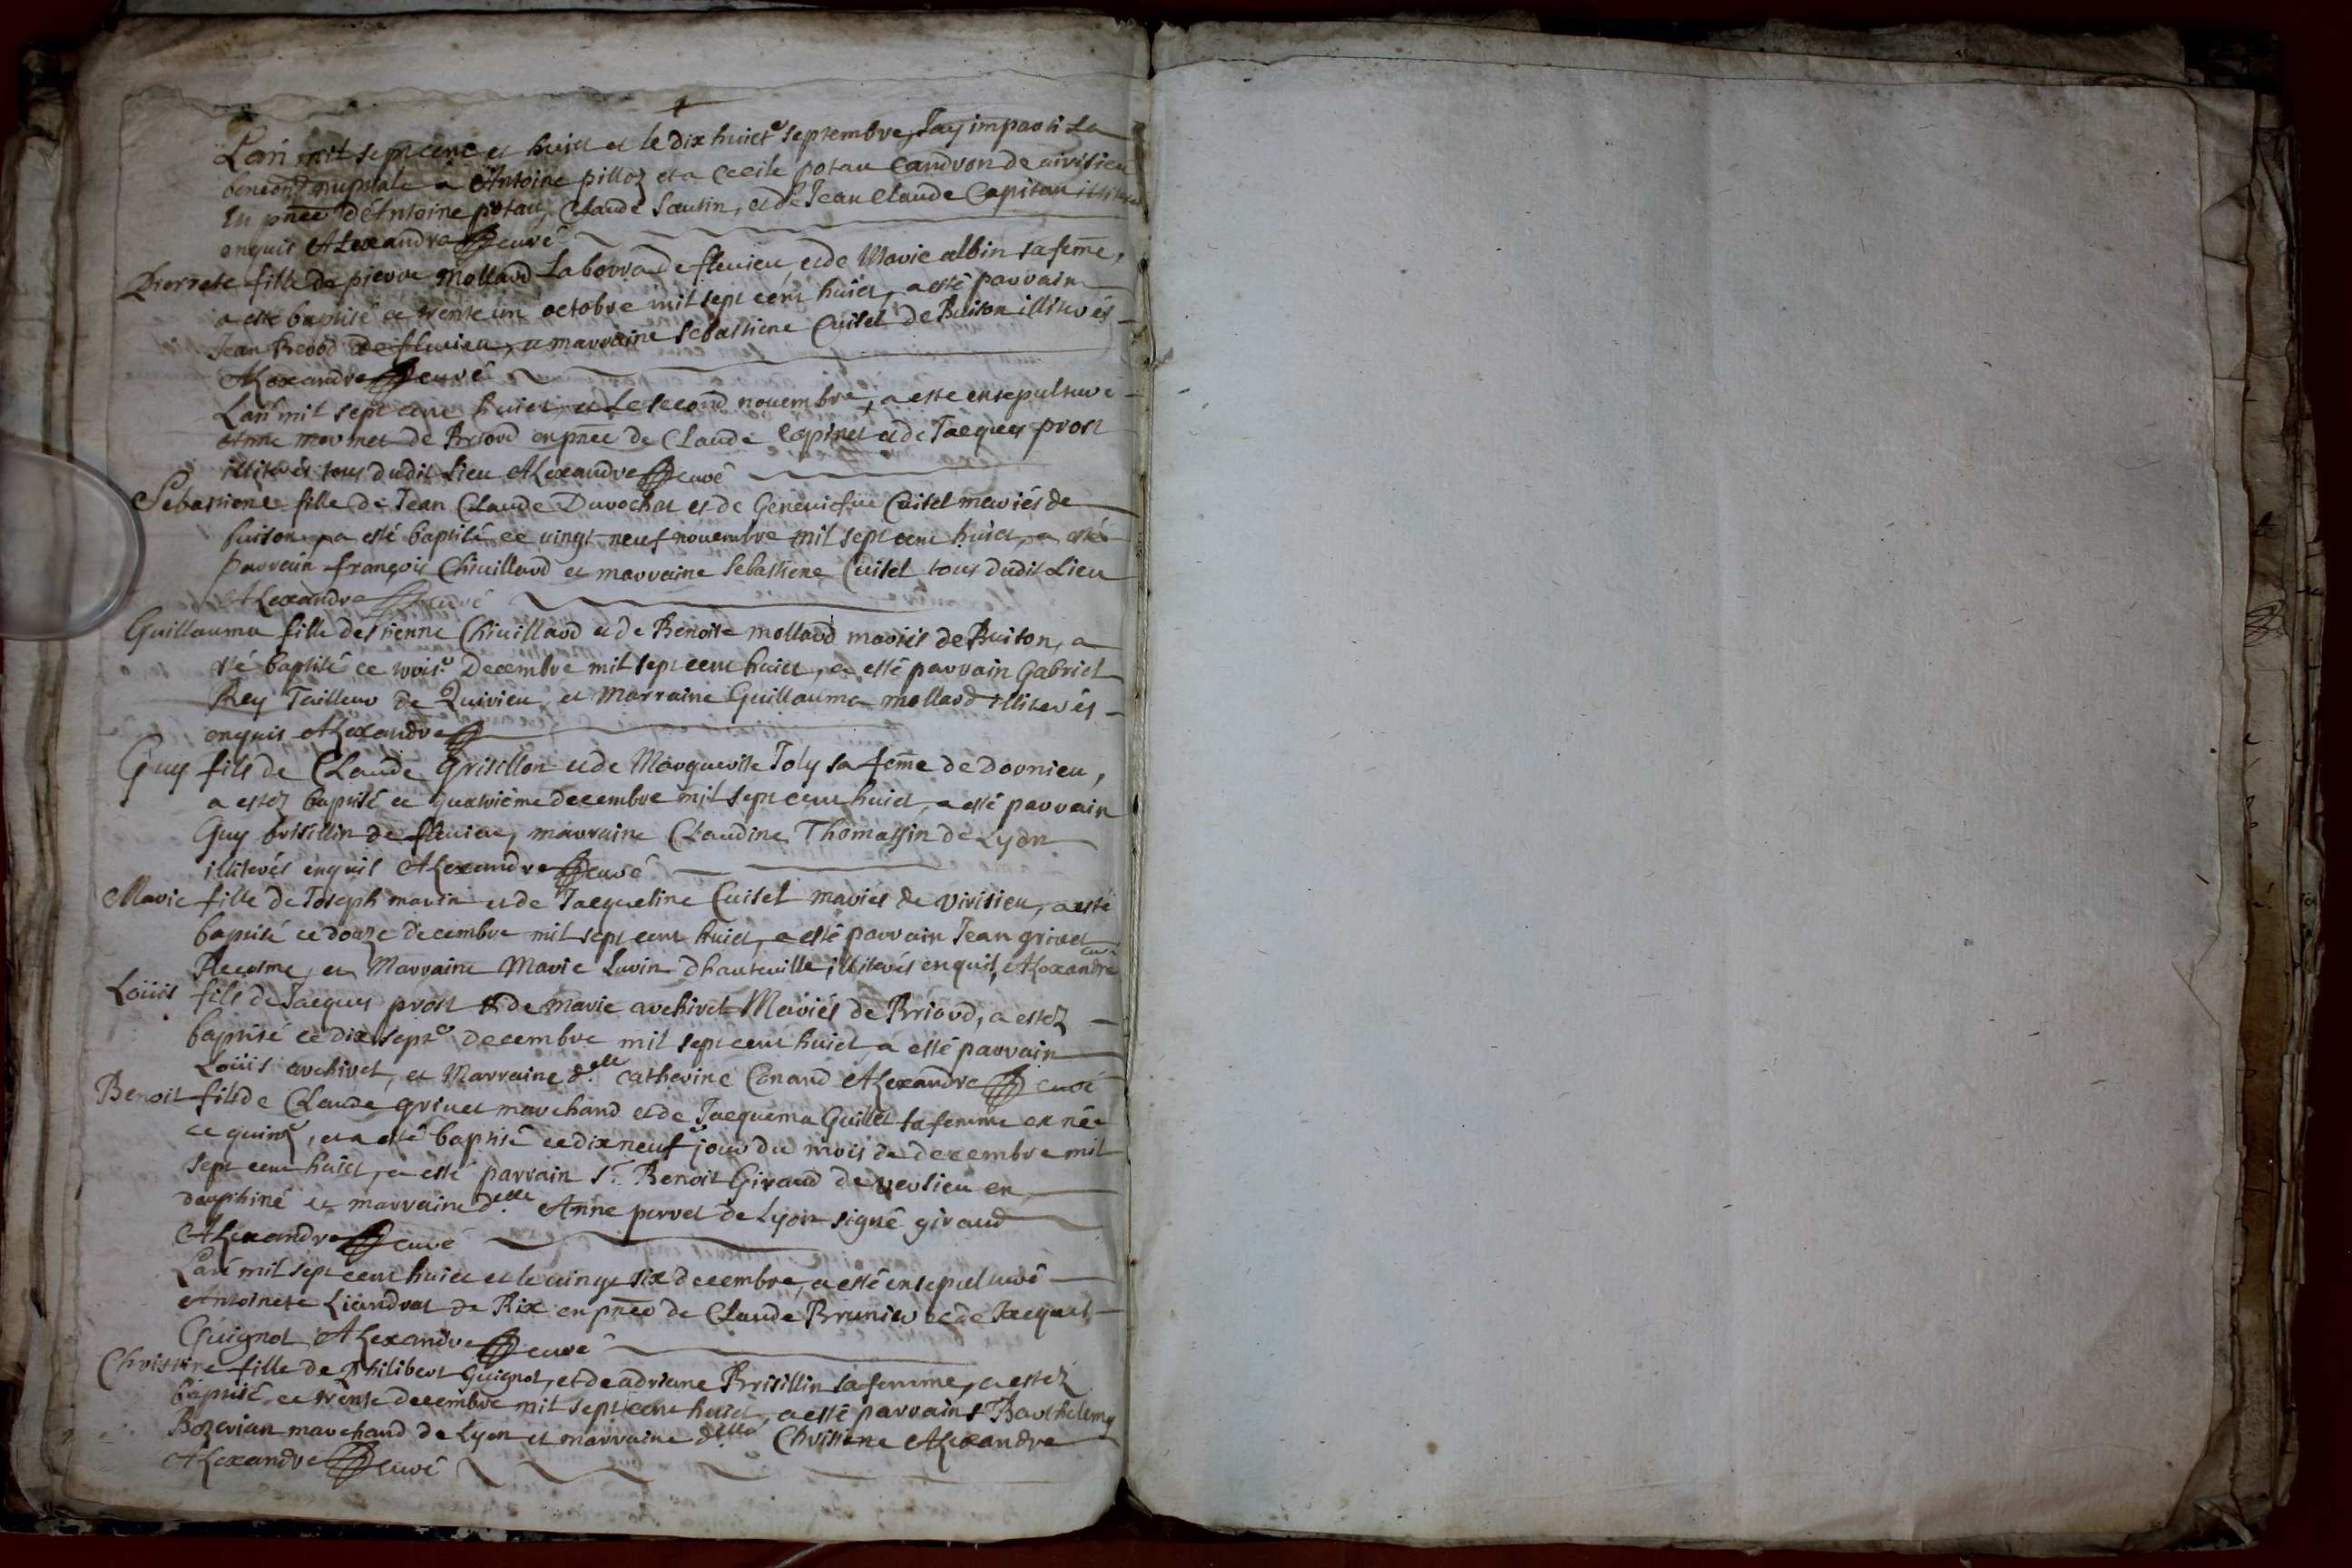 Lan mil sept cent et huict et le dix huicte septembre, Jay imparti la
beneon nuptiale a Antoine pilloz et a Cecile potau Candron de virisieu
En pnce d'Antoine potau, Claude Sautin, et de Jean Claude Capitan
enquis Alexandre curé
Pierrete fille de pierre Mollard Laborra de fluvieu, et de Marie albin sa feme,
a esté baptisé ce trente un octobre mil sept cent huict, a esté parrain
Jean Revod de fluvieu, a marraine Sebastiene Cuitet de Buison illiterés
Alexandre curé
Lan mil sept cent huict et Le second novembre, a esté ensepulturé
mornet de Briord en pnce de Claude Copinet et de Jacques prost
illiterés tous dudit Lieu Alexandre curé
Sebastiene fille de Jean Claude Durochat et de Geneviefve Cuitet mariés de
buison, a esté baptisé ce vingt neuf novembre mil sept cent huict, a esté
parrain françois Chivillard et marraine Sebastiene Cuitet tous dudit Lieu
Alexandre curé
Guillauma fille destienne Chivillard et de Benoite mollard mariés de Buison, a
esté baptisé ce trois.e Decembre mil sept cent huict, a esté parrain Gabriel
Rey Tailleur de Quirieu, et Marraine Guillauma mollard illiterés
enquis Alexandre
Guy fils de Claude grisillon et de Marguerite Joly sa feme de Dornieu,
a estez baptisé ce quatrième decembre mil sept cent huict, a esté parrain
Guy brisillin de fluvieu, marraine Claudine Thomassin de Lyon
illiterés enquis Alexandre curé
Marie fille de Joseph marin et de Jacqueline Cuitet mariés de virisieu, a esté
baptisé ce douze decembre mil sept cent huict, a esté parrain Jean grivet
et Marraine Marie Luvin dhauteville, illiterés enquis, Alexandre curé
Loüis fils de Jacques prost et de Marie archiret Mariés de Briord, a estez
baptisé ce dix sept.e decembre mil sept cent huict, a esté parrain
Loüis archiret, et Marraine d.elle catherine Conand Alexandre curé
Benoit fils de Claude grivet marchand et de Jacquema Guillet sa femme est né
ce quinz.e, et a esté baptisé ce dix neuf.e jour du mois de decembre mil
sept cent huict, a esté parrain S.r Benoit Giraud de verlieu en
dauphiné et marraine d.elle Anne perret de Lyon signé giraud
Alexandre curé
Lan mil sept cent huict et le vingt six decembre, a esté ensepulturé
Antoinete Liandrat de Rix en pnce de Claude Brunier et de Jacques
Guignot Alexandre curé
Christine fille de Philibert Guignot, et de adriane Brisillin sa femme, a estéz
baptisé ce trente decembre mil sept cent huict, a esté parrain s.r Barthelemy
Bozerian marchand de Lyon et marraine d.elle Christine Alexandre
Alexandre curé